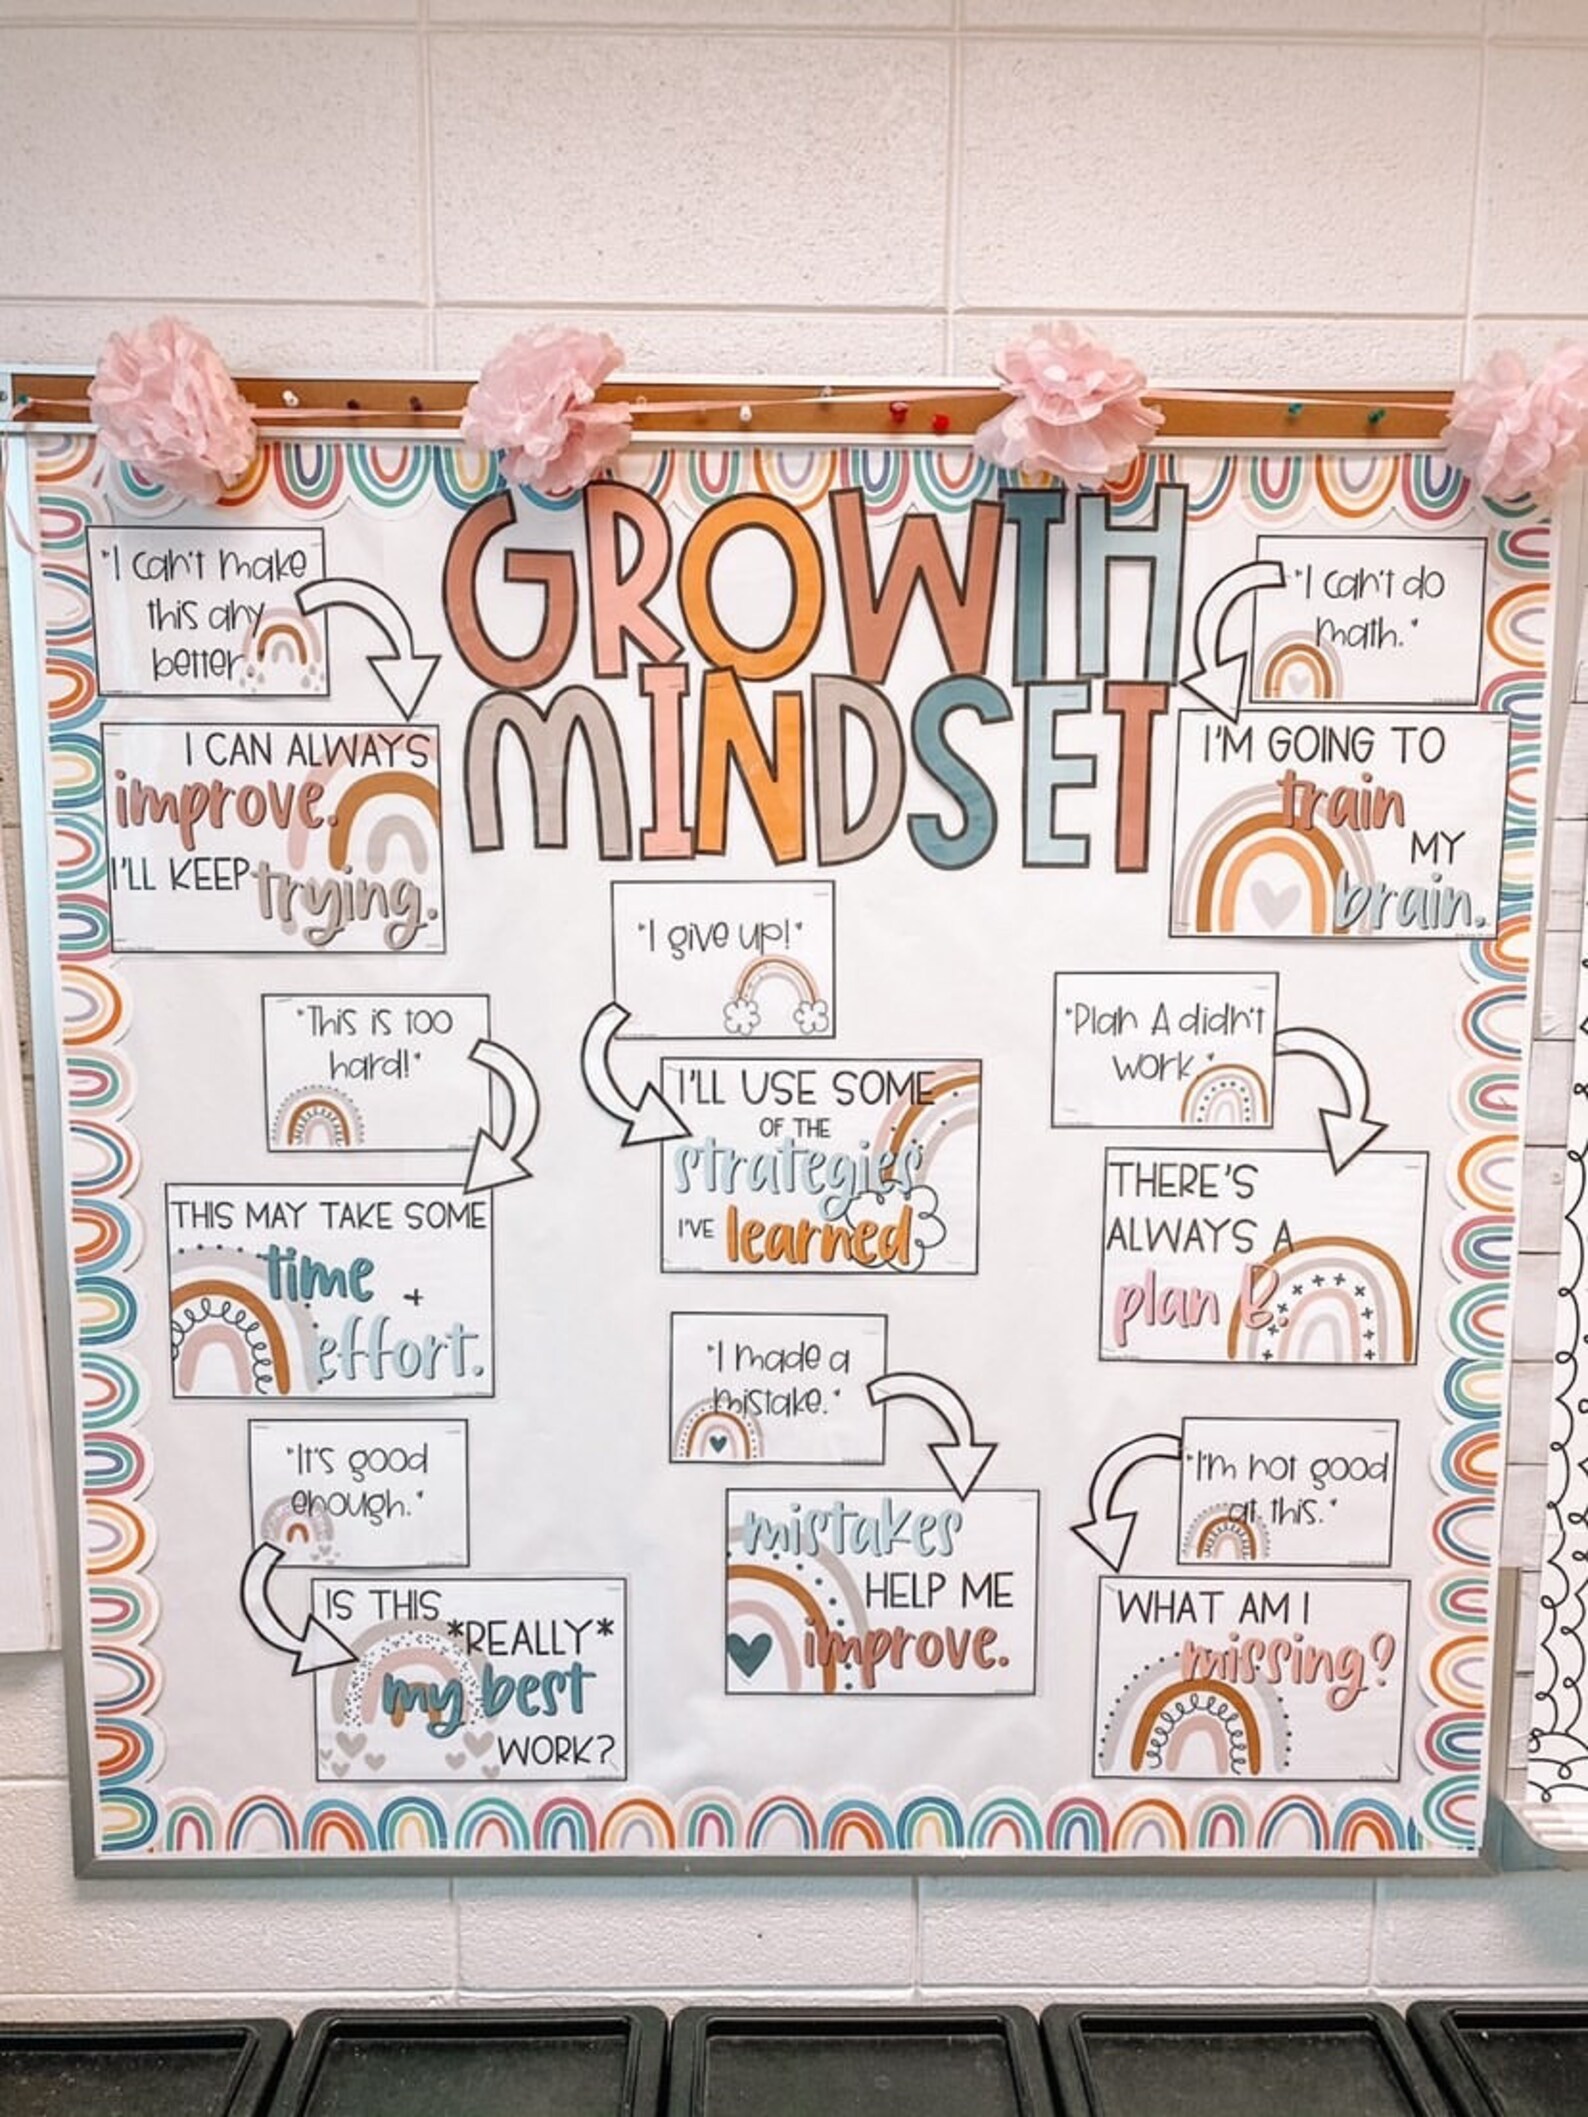 GROWTH
MINDSET
"I can't make
this any
better."
I CAN ALWAYS
improve.
I'LL KEEP trying.
"I can't do
math."
I'M GOING TO
train
MY
brain.
"I give up!"
I'LL USE SOME
OF THE
strategies
I'VE learned
"This is too
hard!"
THIS MAY TAKE SOME
time +
effort.
"Plan A didn't
work."
THERE'S
ALWAYS A
plan B.
"I made a
mistake."
mistakes
HELP ME
improve.
"It's good
enough."
IS THIS
*REALLY*
my best
WORK?
"I'm not good
at this."
WHAT AM I
missing?